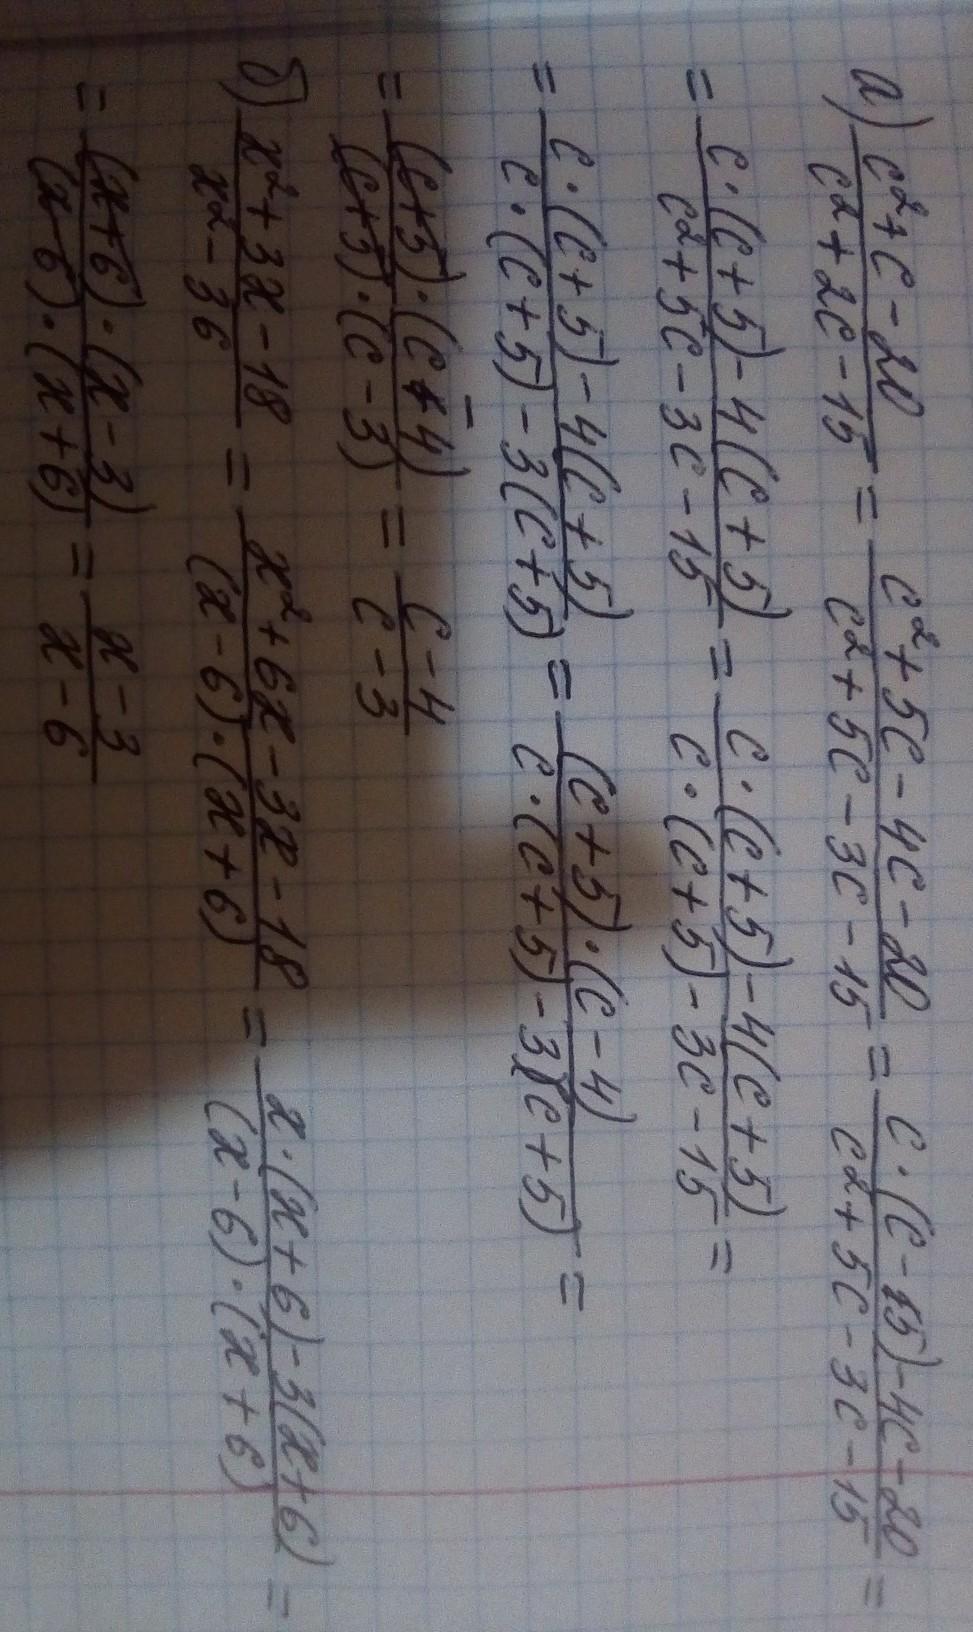 а) (c² + c - 20)/(c² + 2c - 15) = (c² + 5c - 4c - 20)/(c² + 5c - 3c - 15) = (c · (c - 15) - 4c - 20)/(c² + 5c - 3c - 15) =
= (c · (c + 5) - 4(c + 5))/(c² + 5c - 3c - 15) = (c · (c + 5) - 4(c + 5))/(c · (c + 5) - 3c - 15) =
= (c · (c + 5) - 4(c + 5))/(c · (c + 5) - 3(c + 5)) = ((c + 5) · (c - 4))/(c · (c + 5) - 3(c + 5)) =
= ((c + 5) · (c - 4))/((c + 5) · (c - 3)) = (c - 4)/(c - 3)
б) (x² + 3x - 18)/(x² - 36) = (x² + 6x - 3x - 18)/((x - 6) · (x + 6)) = (x · (x + 6) - 3(x + 6))/((x - 6) · (x + 6)) =
= ((x + 6) · (x - 3))/((x - 6) · (x + 6)) = (x - 3)/(x - 6)